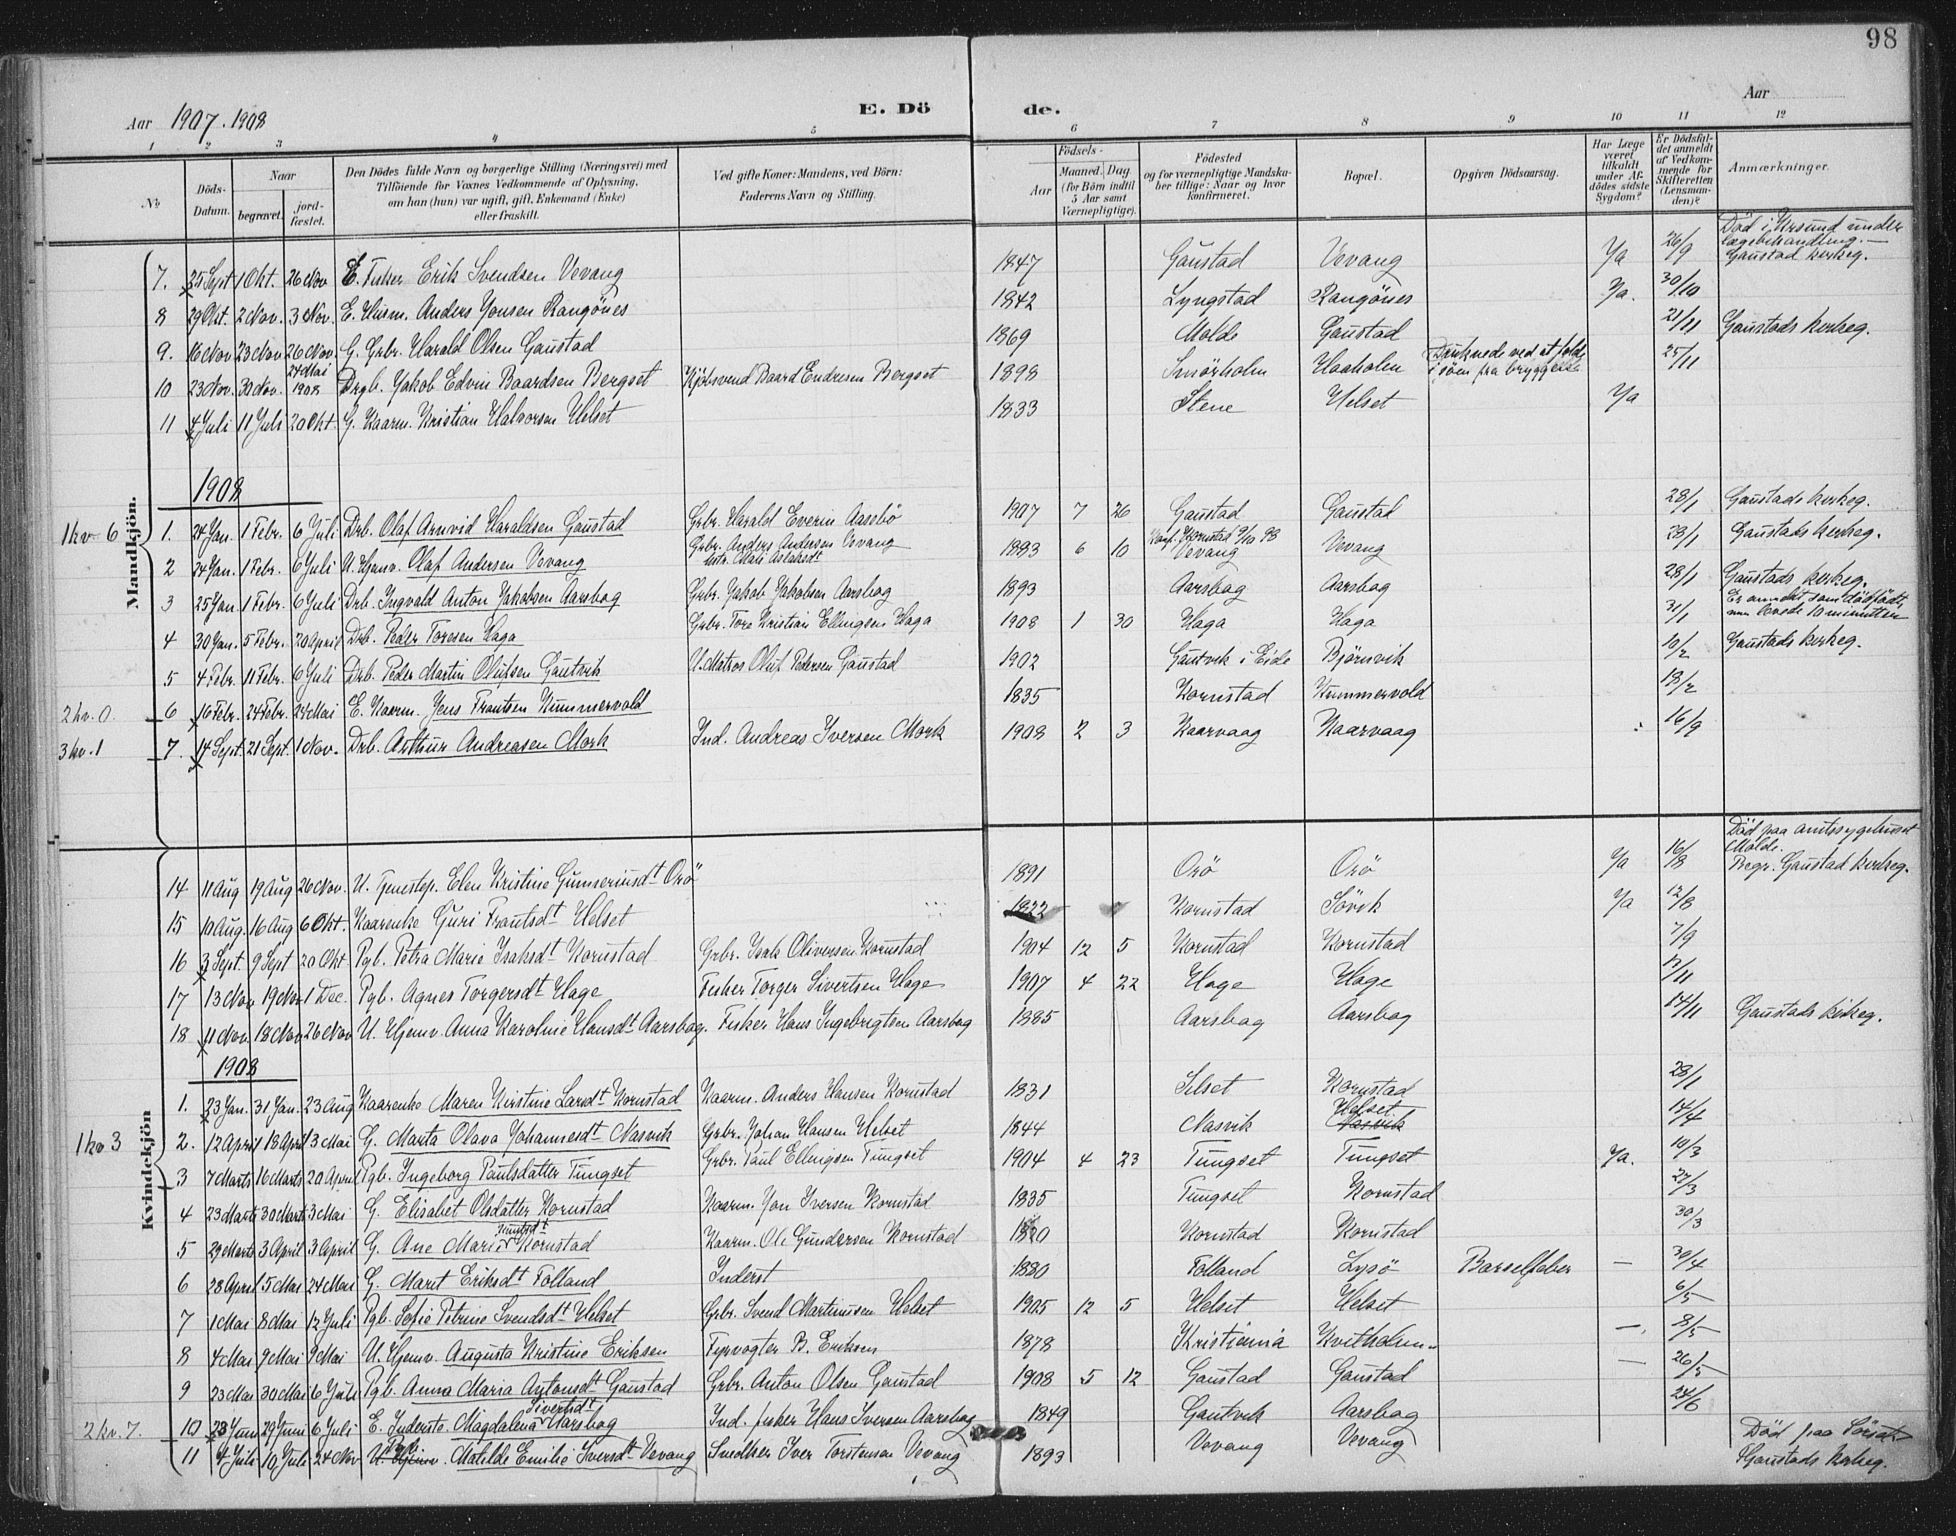 98
Aar 1907. 1908 E. Dö de. Aar
1 2 3 4 5 6 7 8 9 10 11 12
No. Döds-Datum. Naar begravet. jord-fæstet. Den Dödes fulde Navn og borgerlige Stilling (Næringsvei) med Tilföiende for Voxnes Vedkommende af Oplysning, om han (hun) var ugift, gift, Enkemand (Enke) eller fraskilt. Ved gifte Koner: Mandens, ved Börn: Faderens Navn og Stilling. Aar Födsels- Maaned. Dag. (for Börn indtil 5 Aar samt Værnepligtige). Födested og for værnepligtige Mandskaber tillige: Naar og hvor konfirmeret. Bopæl. Opgiven Dödsaarsag. Har Læge været tilkaldt under Afdödes sidste Sygdom? Er Dödsfaldet anmeldt af Vedkommende for Skifteretten (Lensmanden)? Anmærkninger.
Mandkjön.
7. 25 Sept 1 Okt. 26 Nov E. Fisker Erik Svendsen Vevang 1847 Gaustad Vevang Ja 26/9 Död i Krsund under lægebehandling. — Gaustad kirkeg.
8 29 Okt. 2 Nov. 3 Nov. E. Husm. Anders Jonsen Rangönes 1842 Lyngstad Rangönes Ja. 30/10
9. 16 Nov 23 Nov 26 Nov. G. Grbr. Harald Olsen Gaustad 1869 Molde Gaustad 21/11 Gaustads kirkeg.
10 23 Nov. 30 Nov. 24 Mai 1908 Drgb. Jakob Edvin Baardsen Bergset Kjöbsvend Baard Endresen Bergset 1898 Smörholm Haaholen Druknede ved at falde i söen fra bryggen 25/11
11 4 Juli 11 Juli 20 Okt G. Kaarm. Kristian Halvorsen Helset 1833 Stene Helset Ja
1908
1 kv 6 1. 24 Jan. 1 Febr. 6 Juli Drb. Olaf Arnvid Haraldsen Gaustad Grbr. Harald Everin Aassbö 1907 7 26 Gaustad Gaustad 28/1 Gaustads kirkeg.
2 24 Jan. 1 Febr. 6 Juli U. Hjemv. Olaf Andersen Vevang Grbr. Anders Andersen Vevang 1883 6 10 Konf. i Kornstad 9/10 98 Vevang Vevang 28/1 Gaustads kirkeg.
3 25 Jan 1 Febr. 6 Juli Drb. Ingvald Anton Jakobsen Aarsbog Grbr. Jakob Jakobsen Aarsbog 1893 Aarsbog Aarsbog 28/1 Gaustads kirkeg.
4 30 Jan. 5 Febr. 20 April Drb. Peder Toresen Haga Grbr. Tore Kristian Ellingsen Haga 1908 1 30 Haga Haga 31/1 Er anmeldt som dödfödt, men levede 10 minutter
5 4 Febr. 11 Febr. 6 Juli Drb. Peder Martin Olufsen Gautvik U. Matros Oluf Pedersen Gaustad 1902 Gautvik i Eide Björnvik 10/2 Gaustads kirkeg.
2 kv. 0. 6 16 Febr. 24 Febr. 24 Mai E. Kaarm. Jens Frantsen Kummervold 1835 Kornstad Kummervold 18/2
3 kv. 1 7. 14 Sept. 21 Sept. 1 Nov. Drb. Arthur Andreasen Mork Ind. Andreas Iversen Mork 1908 2 3 Kaarvaag Kaarvaag 16/9
Kvindekjön
14 11 Aug 19 Aug 26 Nov. U. Tjenestep. Elen Kristine Gunneriusdt Orö 1891 Orö Orö Ja 16/8 Död paa amtssygehuset Molde. Begr. Gaustad kirkeg.
15 10 Aug. 16 Aug 6 Okt. Kaarenke Guri Frantsdt Helset 1822 Kornstad Sövik Ja 12/8
16 3 Sept. 9 Sept 20 Okt Pgb. Petra Marie Isaksdt Kornstad Grbr. Isak Oliversen Kornstad 1904 12 5 Kornstad Kornstad 7/9
17 13 Nov 19 Nov 1 Dec. Pgb. Agnes Torgersdt Hage Fisker Torger Sivertsen Hage 1907 4 22 Hage Hage 12/11
18 11 Nov. 18 Nov 26 Nov U. Hjemv. Anna Karoline Hansdt Aarsbog. Fisker Hans Ingebrigtsen Aarsbog 1885 Aarsbog Aarsbog 14/11 Gaustads kirkeg.
1908
1. 23 Jan. 31 Jan. 23 Aug Kaarenke Maren Kirstine Larsdt Kornstad Kaarm. Anders Hansen Kornstad 1831 Silset Kornstad 28/1
1 kv 3 2. 12 April 18 April 3 Mai G. Marta Olava Johannesdt Nasvik Grbr. Johan Hansen Helset 1844 Nasvik Helset Nasvik 14/4
3 7 Marts 16 Marts 20 April Pgb. Ingeborg Paulsdatter Tungset Grbr. Paul Ellingsen Tungset 1904 4 23 Tungset Tungset Ja. 10/3
4 23 Marts 30 Marts 3 Mai G. Elisabet Olsdatter Kornstad Kaarm. Jon Iversen Kornstad 1835 Tungset Kornstad 27/3
5 29 Marts 3 April 3 April G. Ane Marie Knutsdt Kornstad Kaarm. Ole Gundersen Kornstad Kornstad Kornstad 30/3
6 28 April 5 Mai 24 Mai G. Marit Eriksdt Folland Inderst 1880 Folland Lysö Barselfeber — 30/4
7 1 Mai 8 Mai 12 Juli Pgb. Sofie Petrine Svendsdt Helset Grbr. Svend Martinusen Helset 1905 12 5 Helset Helset 6/5
8 4 Mai 9 Mai 9 Mai U. Hjemv. Augusta Kristine Eriksen Fyrvogter B. Eriksen 1878 Kristiania Kvitholmen — 8/5
9 23 Mai 30 Mai 6 Juli Pgb. Anna Maria Antonsdt Gaustad Grbr. Anton Olsen Gaustad 1908 5 12 Gaustad Gaustad — 26/5
2 kv. 7. 10 23 Juni 29 Juni 6 Juli E. Inderste Magdalena Sivertsdt Aarsbog Ind. fisker Hans Iversen Aarsbog 1849 Gautvik Aarsbog 24/6
11 4 Juli 10 Juli 24 Nov U. Hjemv. Matilde Emilie Iversdt Vevang Smedker Iver Torstensen Vevang 1893 Vevang Vevang Död paa Gaustads kirkeg.